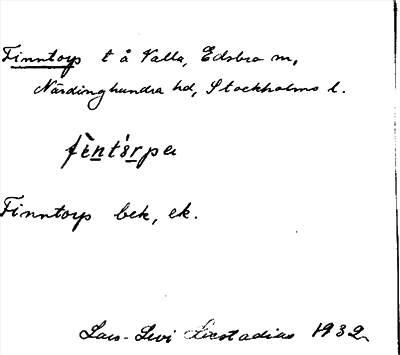 Finntorp t å Valla, Edsbro sn,
Närdinghundra hd, Stockholms l.
fènt'årpa
Finntorp bek, ek.
Lars-Levi Læstadius 1932